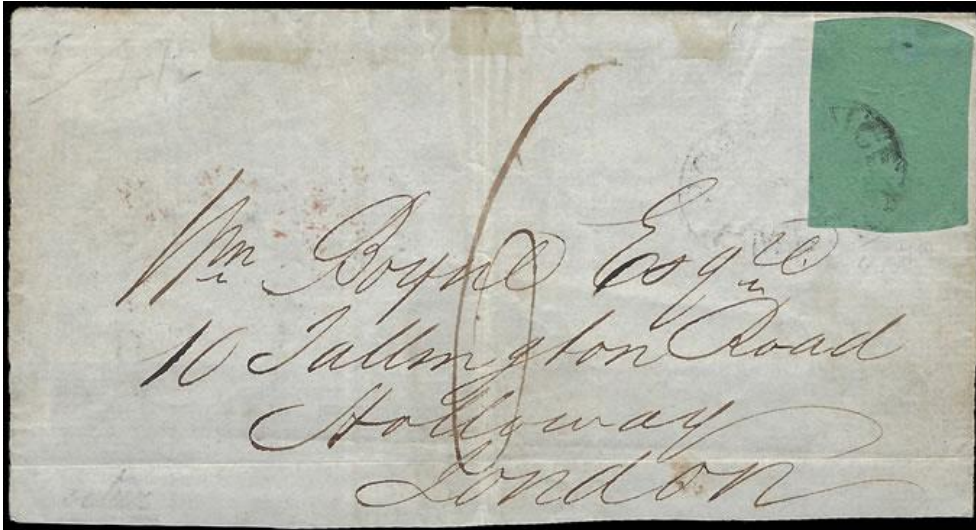 6
Wm Boyne Esqre
10 Tallington Road
Holloway
London